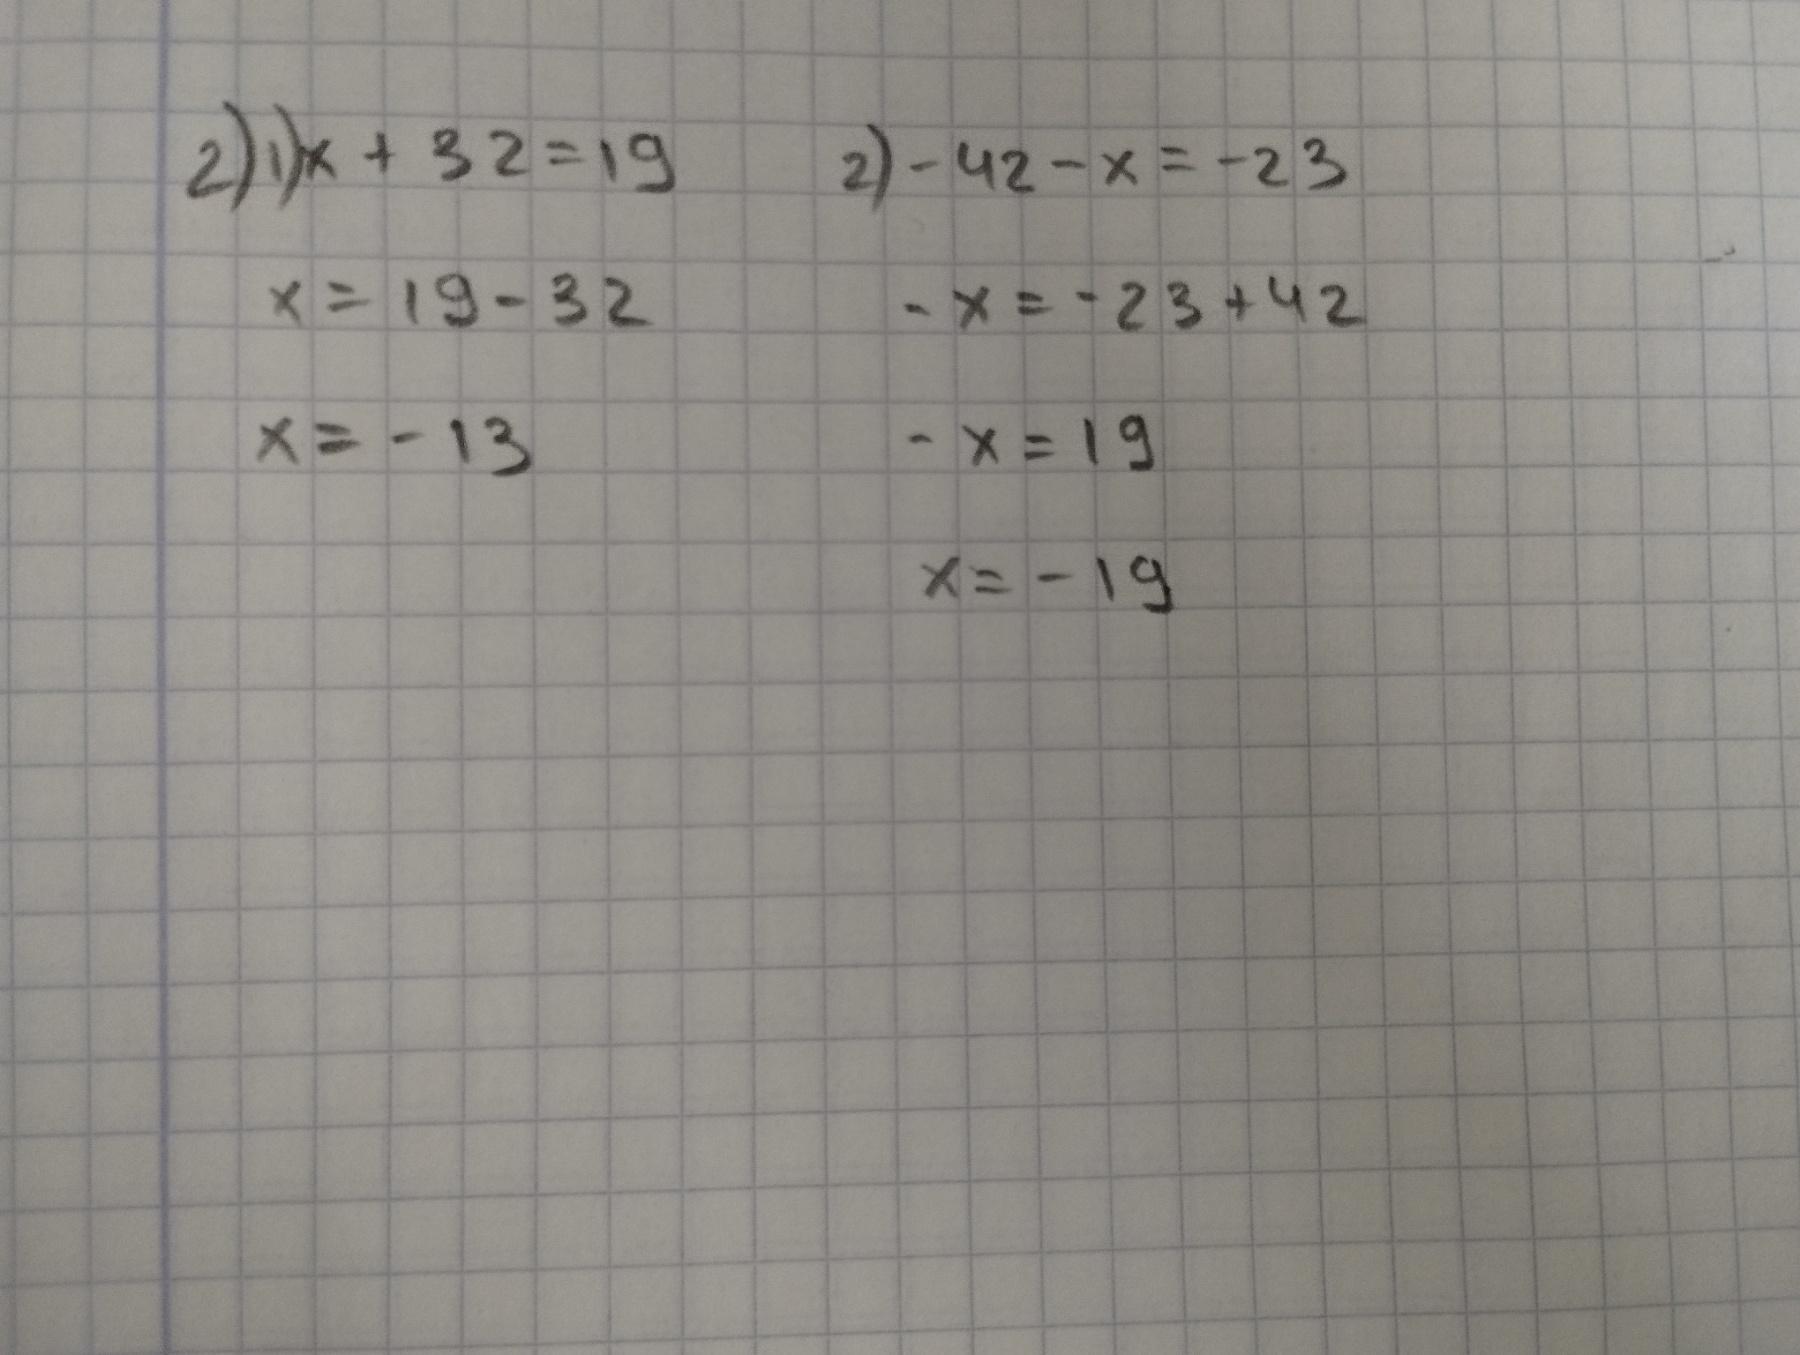 2) 1) x + 32 = 19
x = 19 - 32
x = - 13
2) - 42 - x = - 23
- x = - 23 + 42
- x = 19
x = - 19